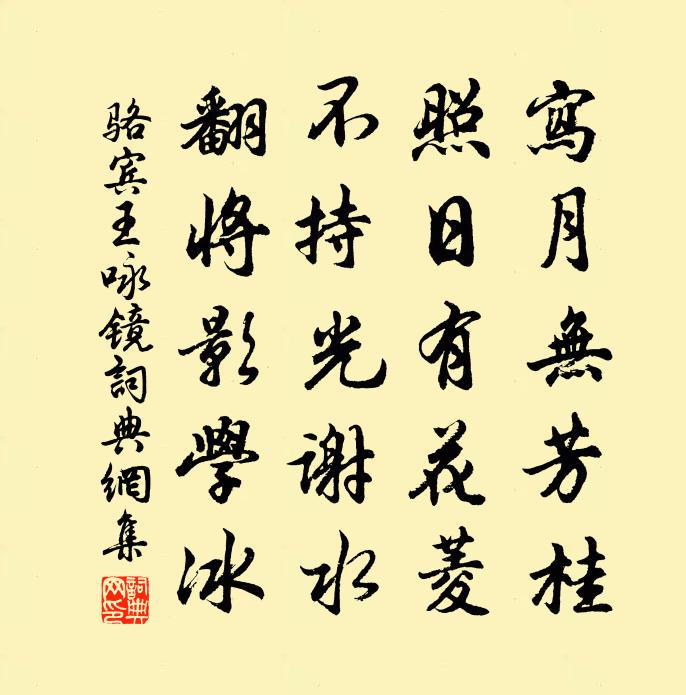 寫月無芳桂
照日有花菱
不持光謝水
翻將影學冰
骆宾王咏镜詞典網集
詞典网印